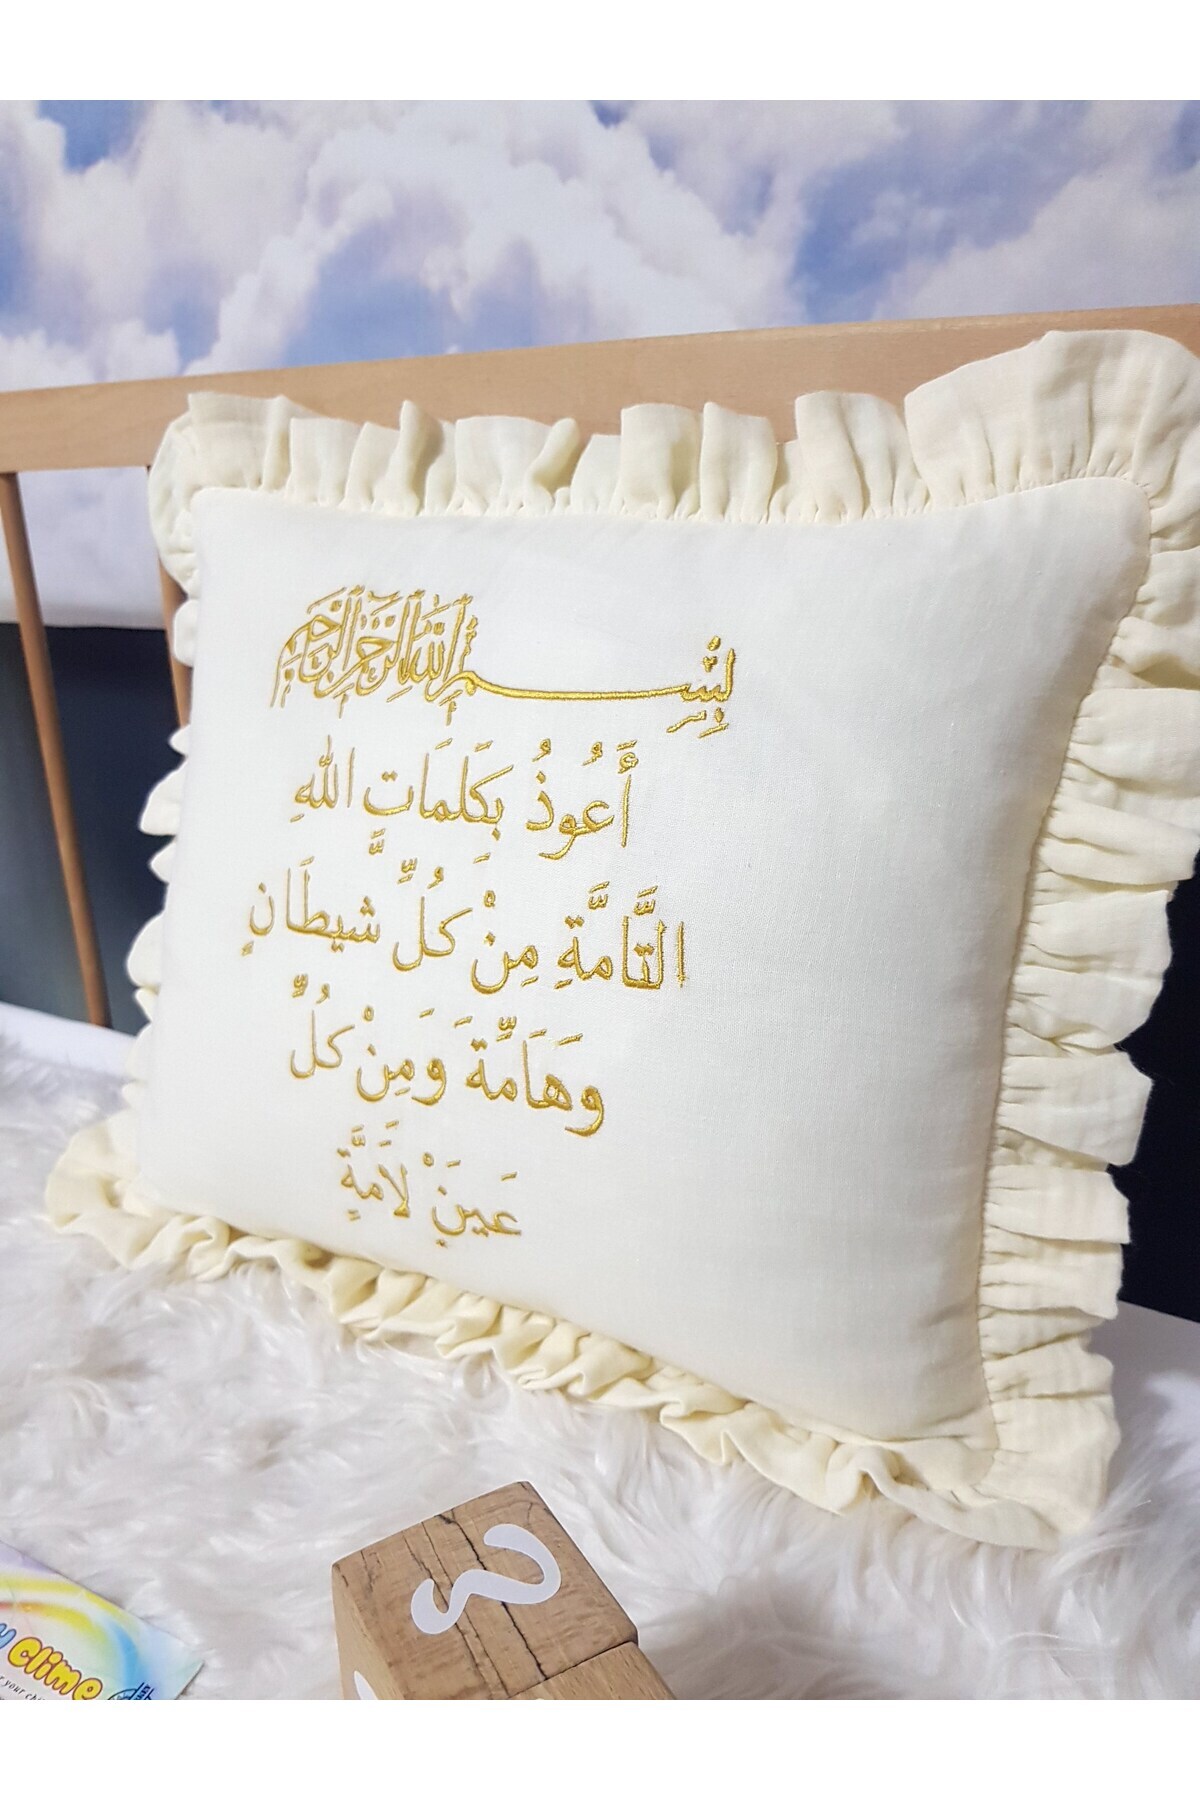 بِسْمِ اللَّهِ الرَّحْمَٰنِ الرَّحِيمِ
أَعُوذُ بِكَلِمَاتِ اللهِ
التَّامَّةِ مِنْ كُلِّ شَيطَانٍ
وَهَامَّةٍ وَمِنْ كُلِّ
عَينٍ لَامَّةٍ
clime